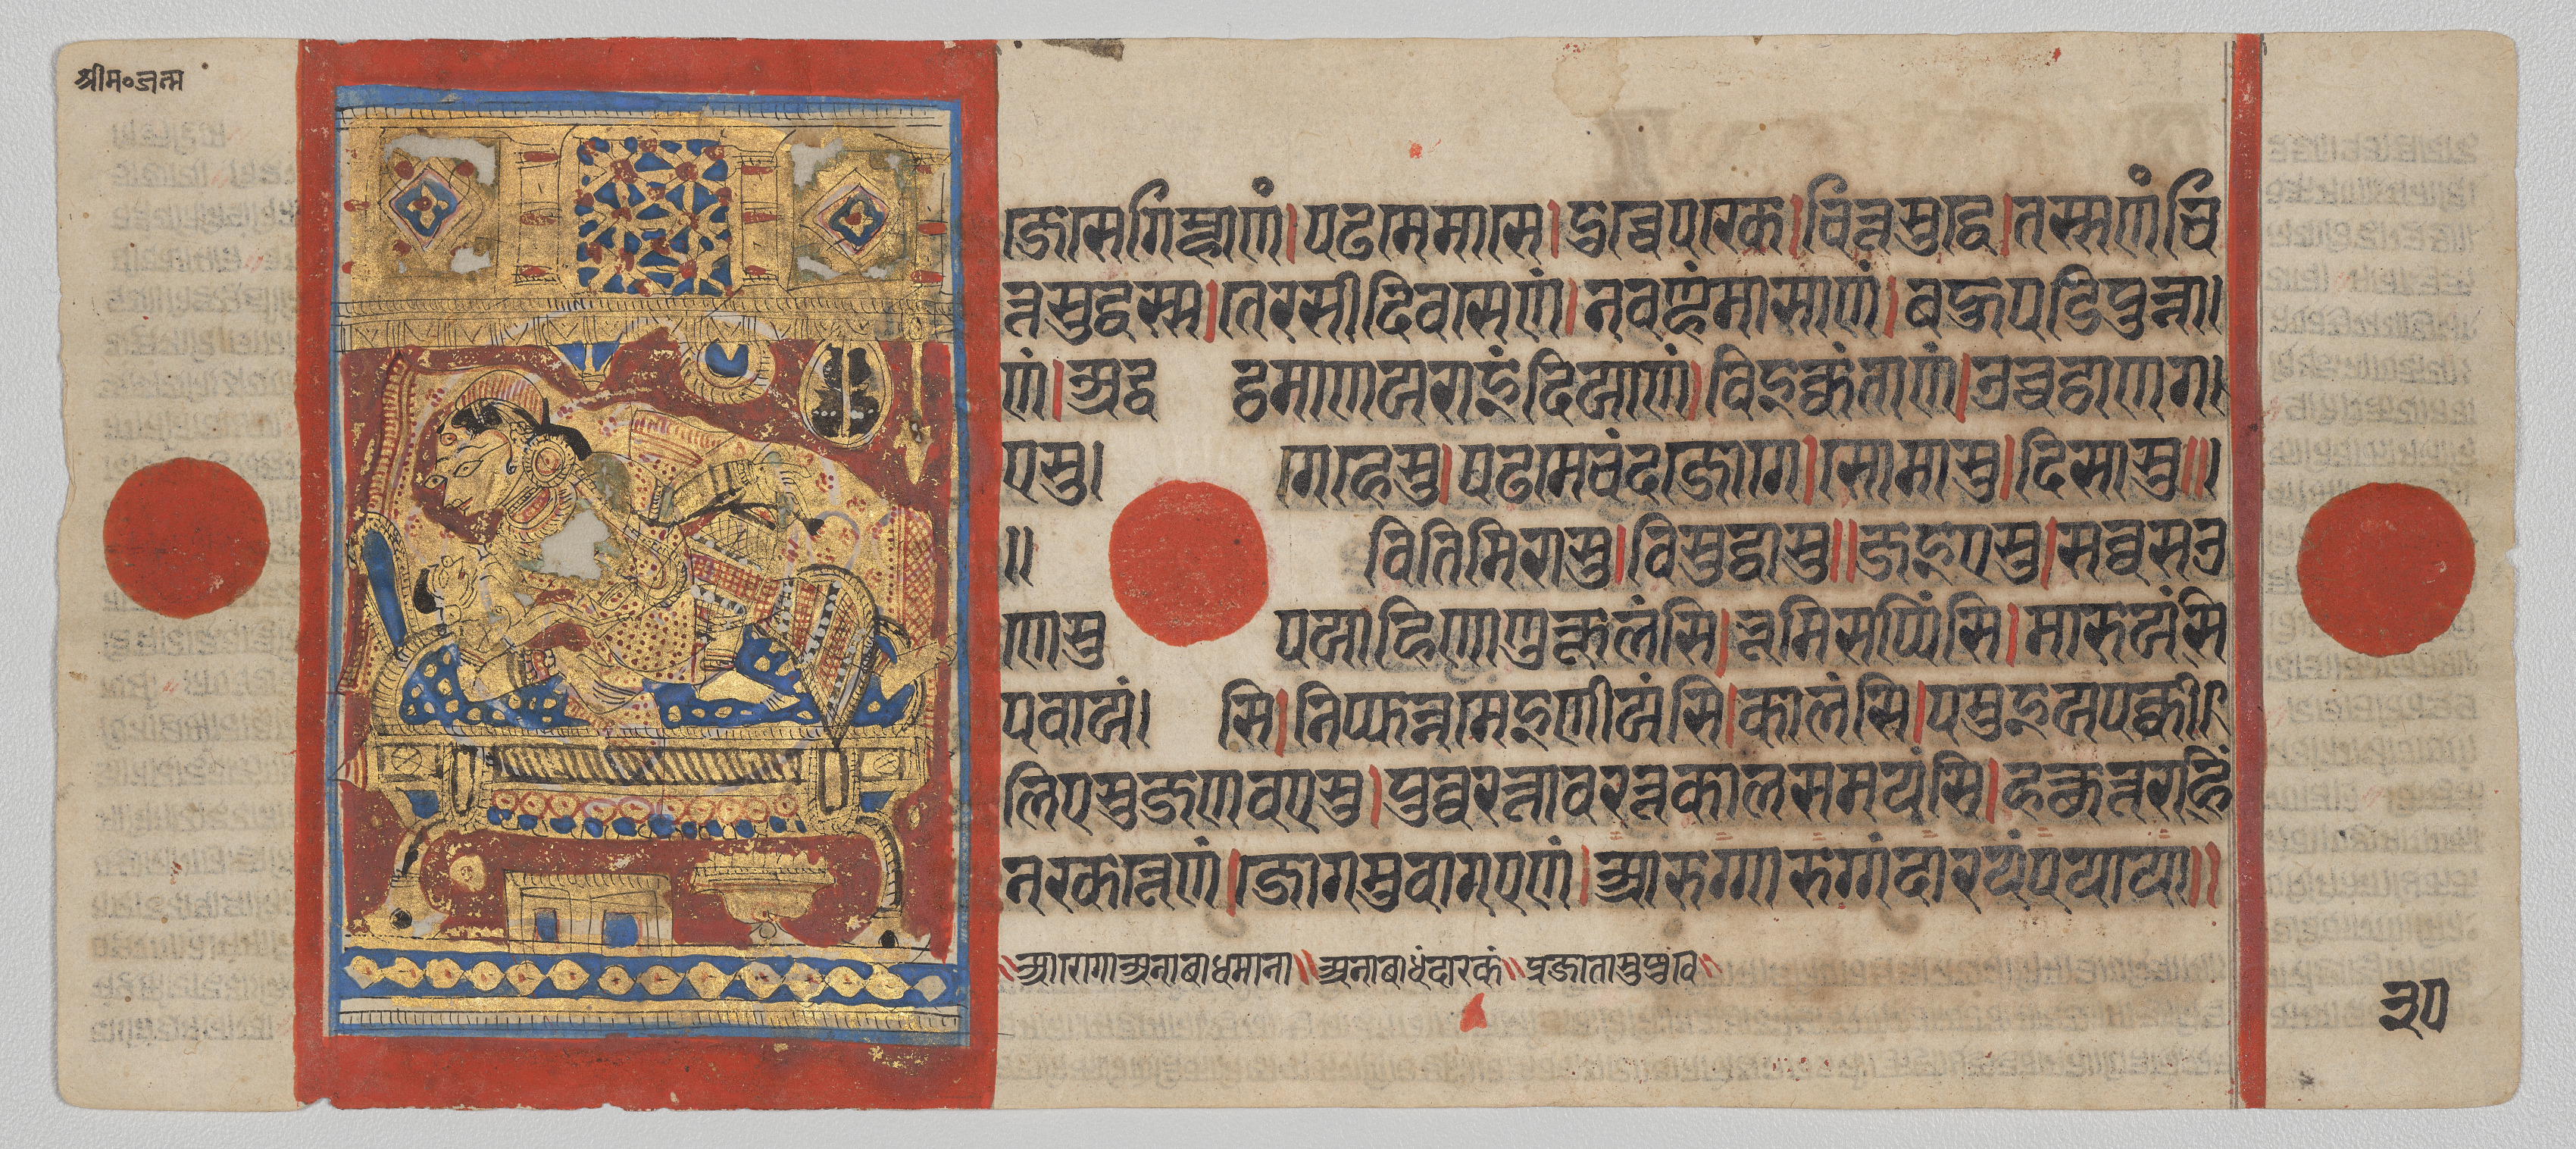 श्रीम॰जन्म
जे से गिम्हाणं। पढमे मासे। दोच्चे पक्खे। चित्तसुद्धे। तस्स णं चि
त्तसुद्धस्स। तेरसीदिवसेणं। नवण्हं मासाणं। बहुपडिपुन्ना
णं। अद्धट्ठमाण य राइंदियाणं। विइक्कंताणं। उच्चट्ठाणग
एसु गहेसु। पढमे चंदजोगे। सोमासु। दिसासु॥
॥ वितिमिरासु। विसुद्धासु॥ जइएसु। सव्वसउ
णेसु पयाहिणाणुकूलंसि। भूमिसप्पिंसि। मारुयंसि
पवायंसि। निप्फन्नमेइणीयंसि। कालंसि। पमुइयपक्की
लिएसु जणवएसु। पुव्वरत्तावरत्तकालसमयंसि। हत्थुत्तराहिं
नक्खत्तेणं। जोगमुवागएणं। आरुग्गारुग्गं दारयं पयाया॥
॥आरोगा अनाबाधमाना॥ अनाबाधं दारकं॥ प्रजाता सुषुवे॥
३०